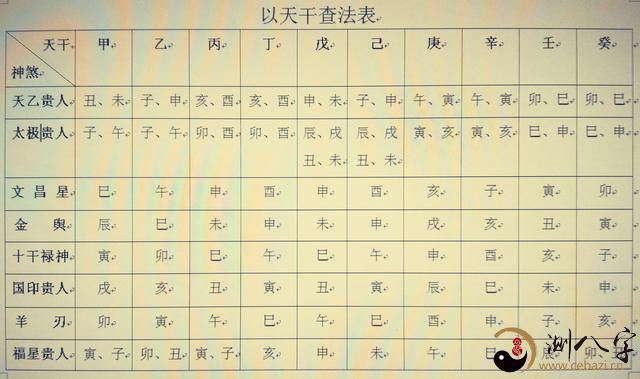 以天干查法表
天干 甲 乙 丙 丁 戊 己 庚 辛 壬 癸
神煞
天乙贵人 丑、未 子、申 亥、酉 亥、酉 申、未 子、申 午、寅 午、寅 卯、巳 卯、巳
太极贵人 子、午 子、午 卯、酉 卯、酉 辰、戌 辰、戌 寅、亥 寅、亥 巳、申 巳、申
丑、未 丑、未
文昌星 巳 午 申 酉 申 酉 亥 子 寅 卯
金舆 辰 巳 未 申 未 申 戌 亥 丑 寅
十干禄神 寅 卯 巳 午 巳 午 申 酉 亥 子
国印贵人 戌 亥 丑 寅 丑 寅 辰 巳 未 申
羊刃 卯 寅 午 巳 午 巳 酉 申 子 亥
福星贵人 寅、子 卯、丑 寅、子 亥 申 未 午 巳 辰 卯、丑
测八字
www.cebazi.cn